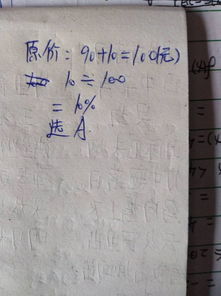 原价：90+10=100(元)
10÷100
=10%
选A